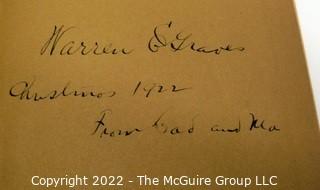 Warren E Graves
Christmas 1922
From Dad and Ma
Copyright 2022 - The McGuire Group LLC